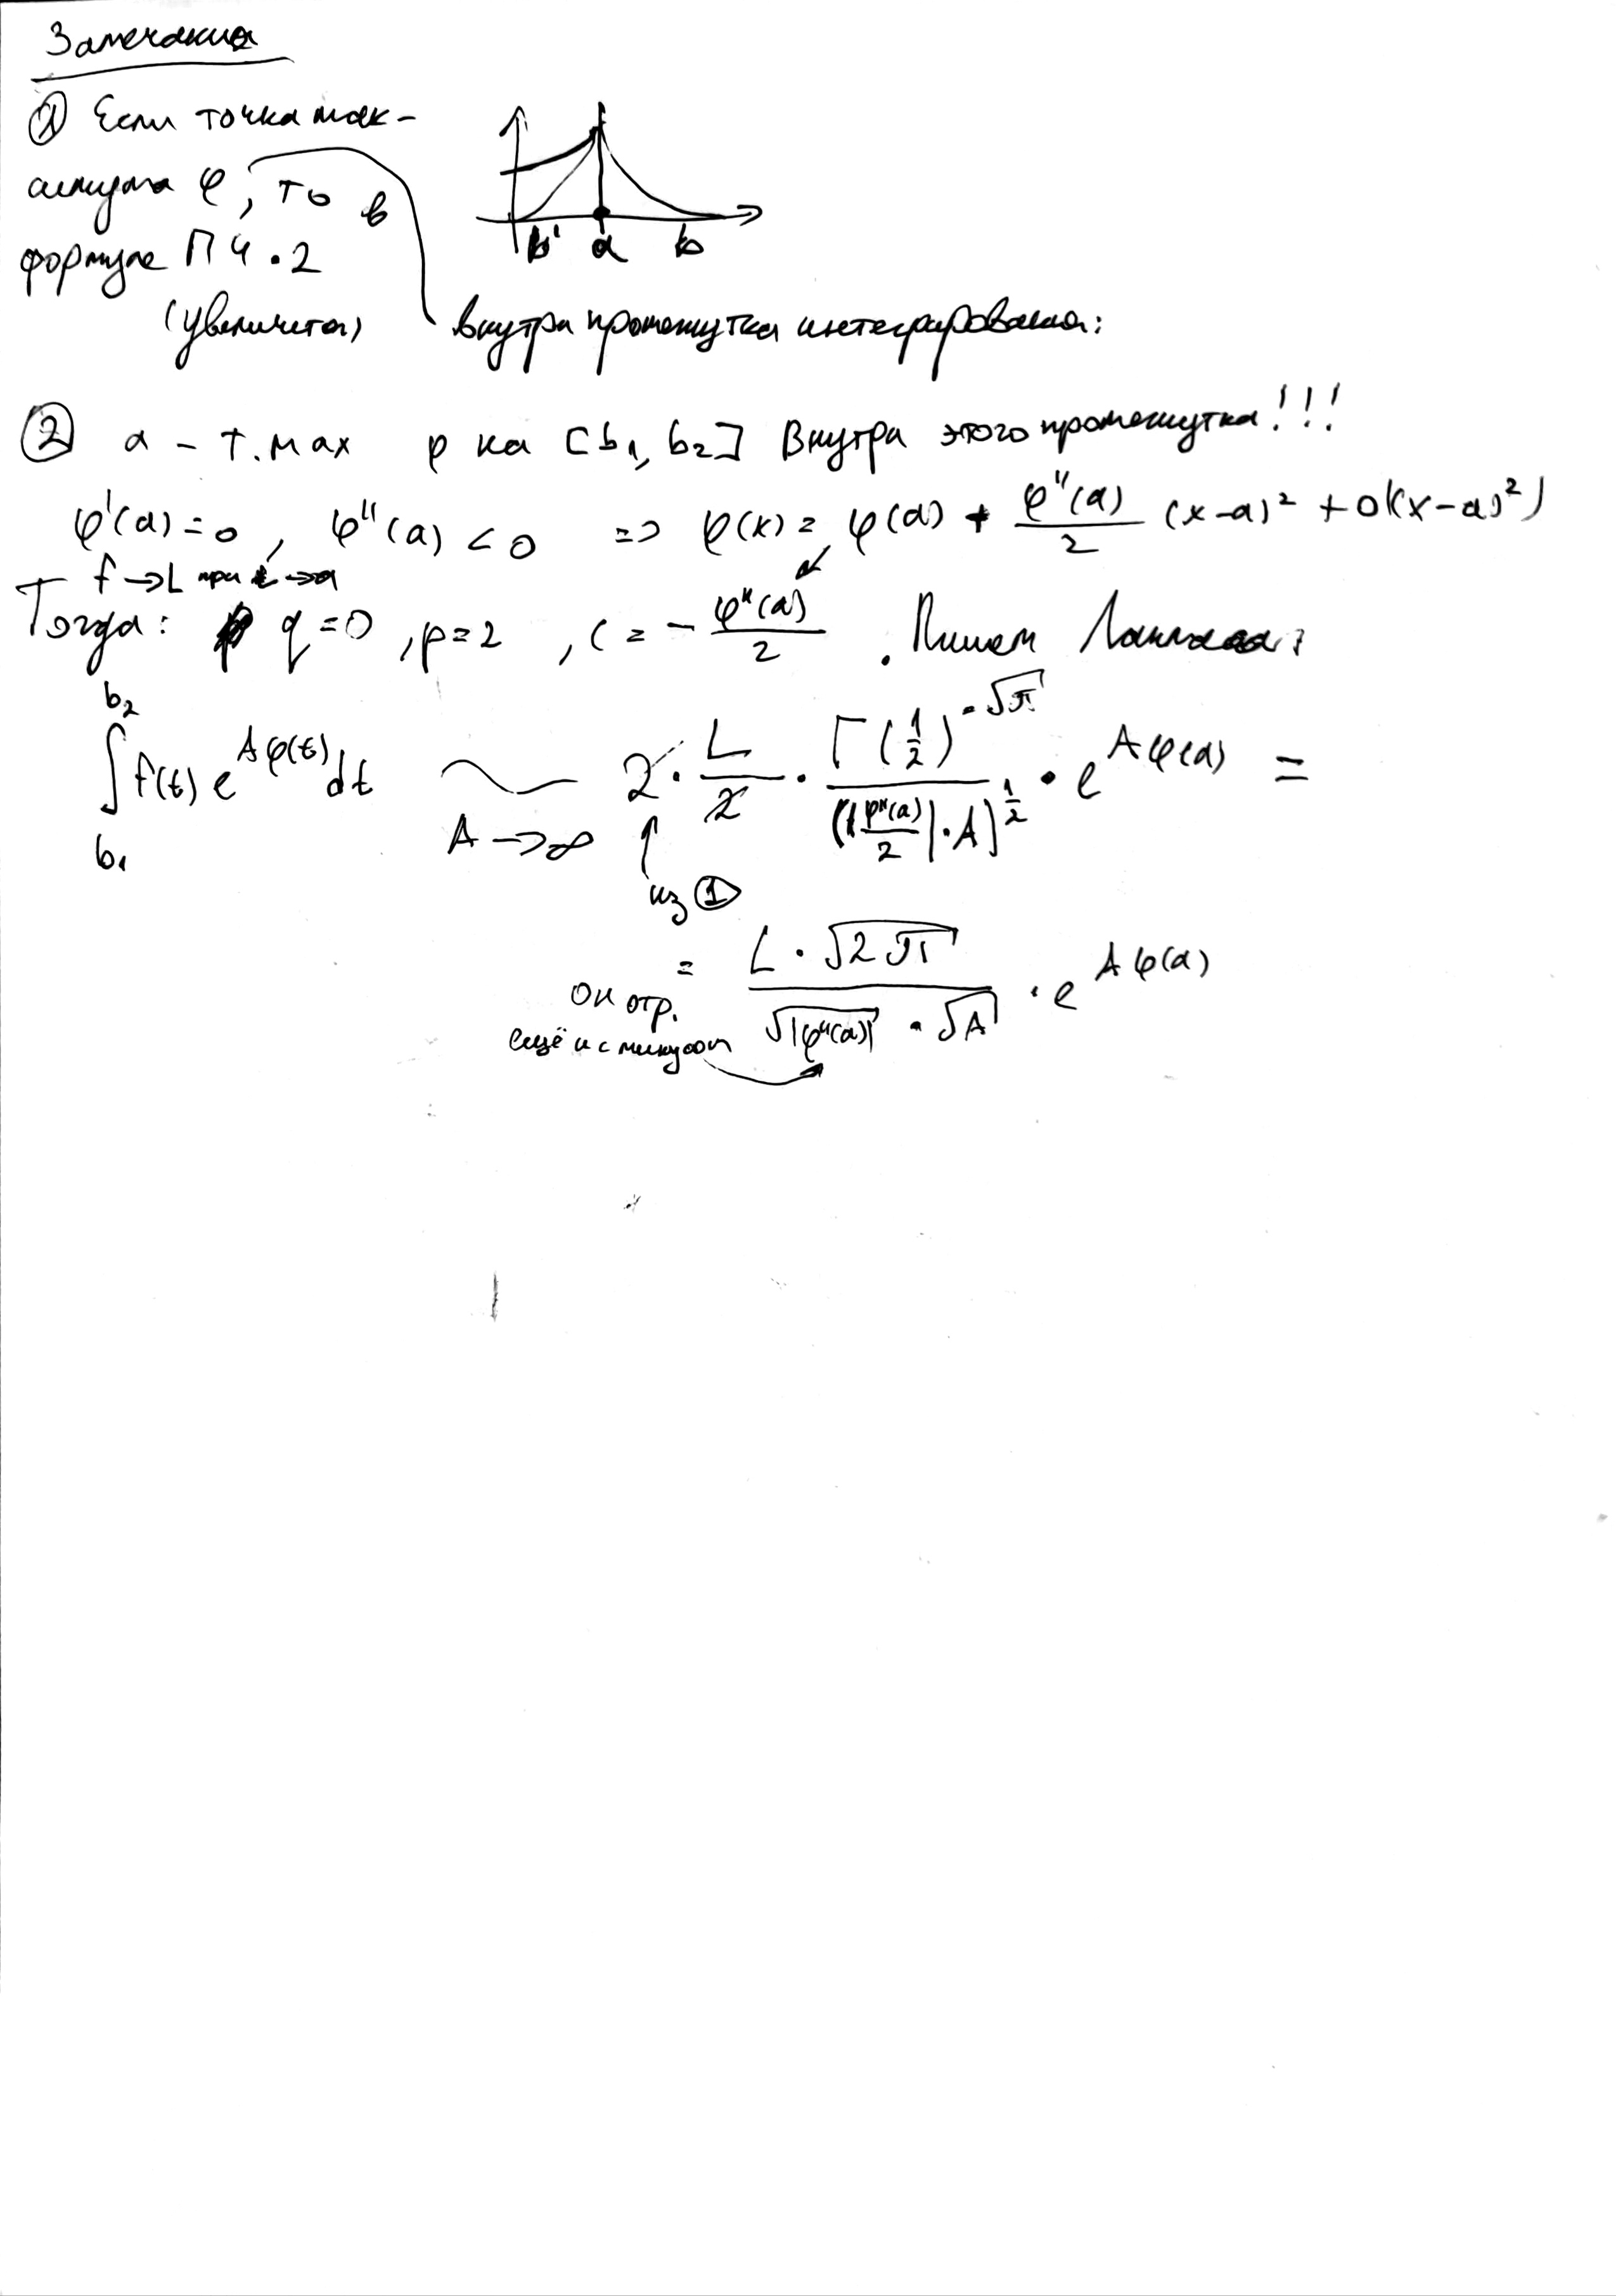 Замечания
① Если точка мак-
симума φ, то в
формуле ПЧ · 2
(увеличится)
внутри промежутка интегрирования:
b' a b
② a – т. max φ на [b₁, b₂] Внутри этого промежутка!!!
φ'(a) = 0, φ''(a) < 0 => φ(x) = φ(a) + φ''(a)/2 (x-a)² + o((x-a)²)
f → L при t → a
Тогда: q = 0, p = 2, c = - φ''(a)/2. Пишем Лапласа:
∫_{b₁}^{b₂} f(t) e^{Aφ(t)} dt ~ 2 · L/2 · Γ(1/2) = √π / (|φ''(a)/2| · A)^{1/2} · e^{Aφ(a)} =
A → ∞
из ①
= L · √2π / √|φ''(a)| · √A · e^{Aφ(a)}
он отр.
ещё и с минусом